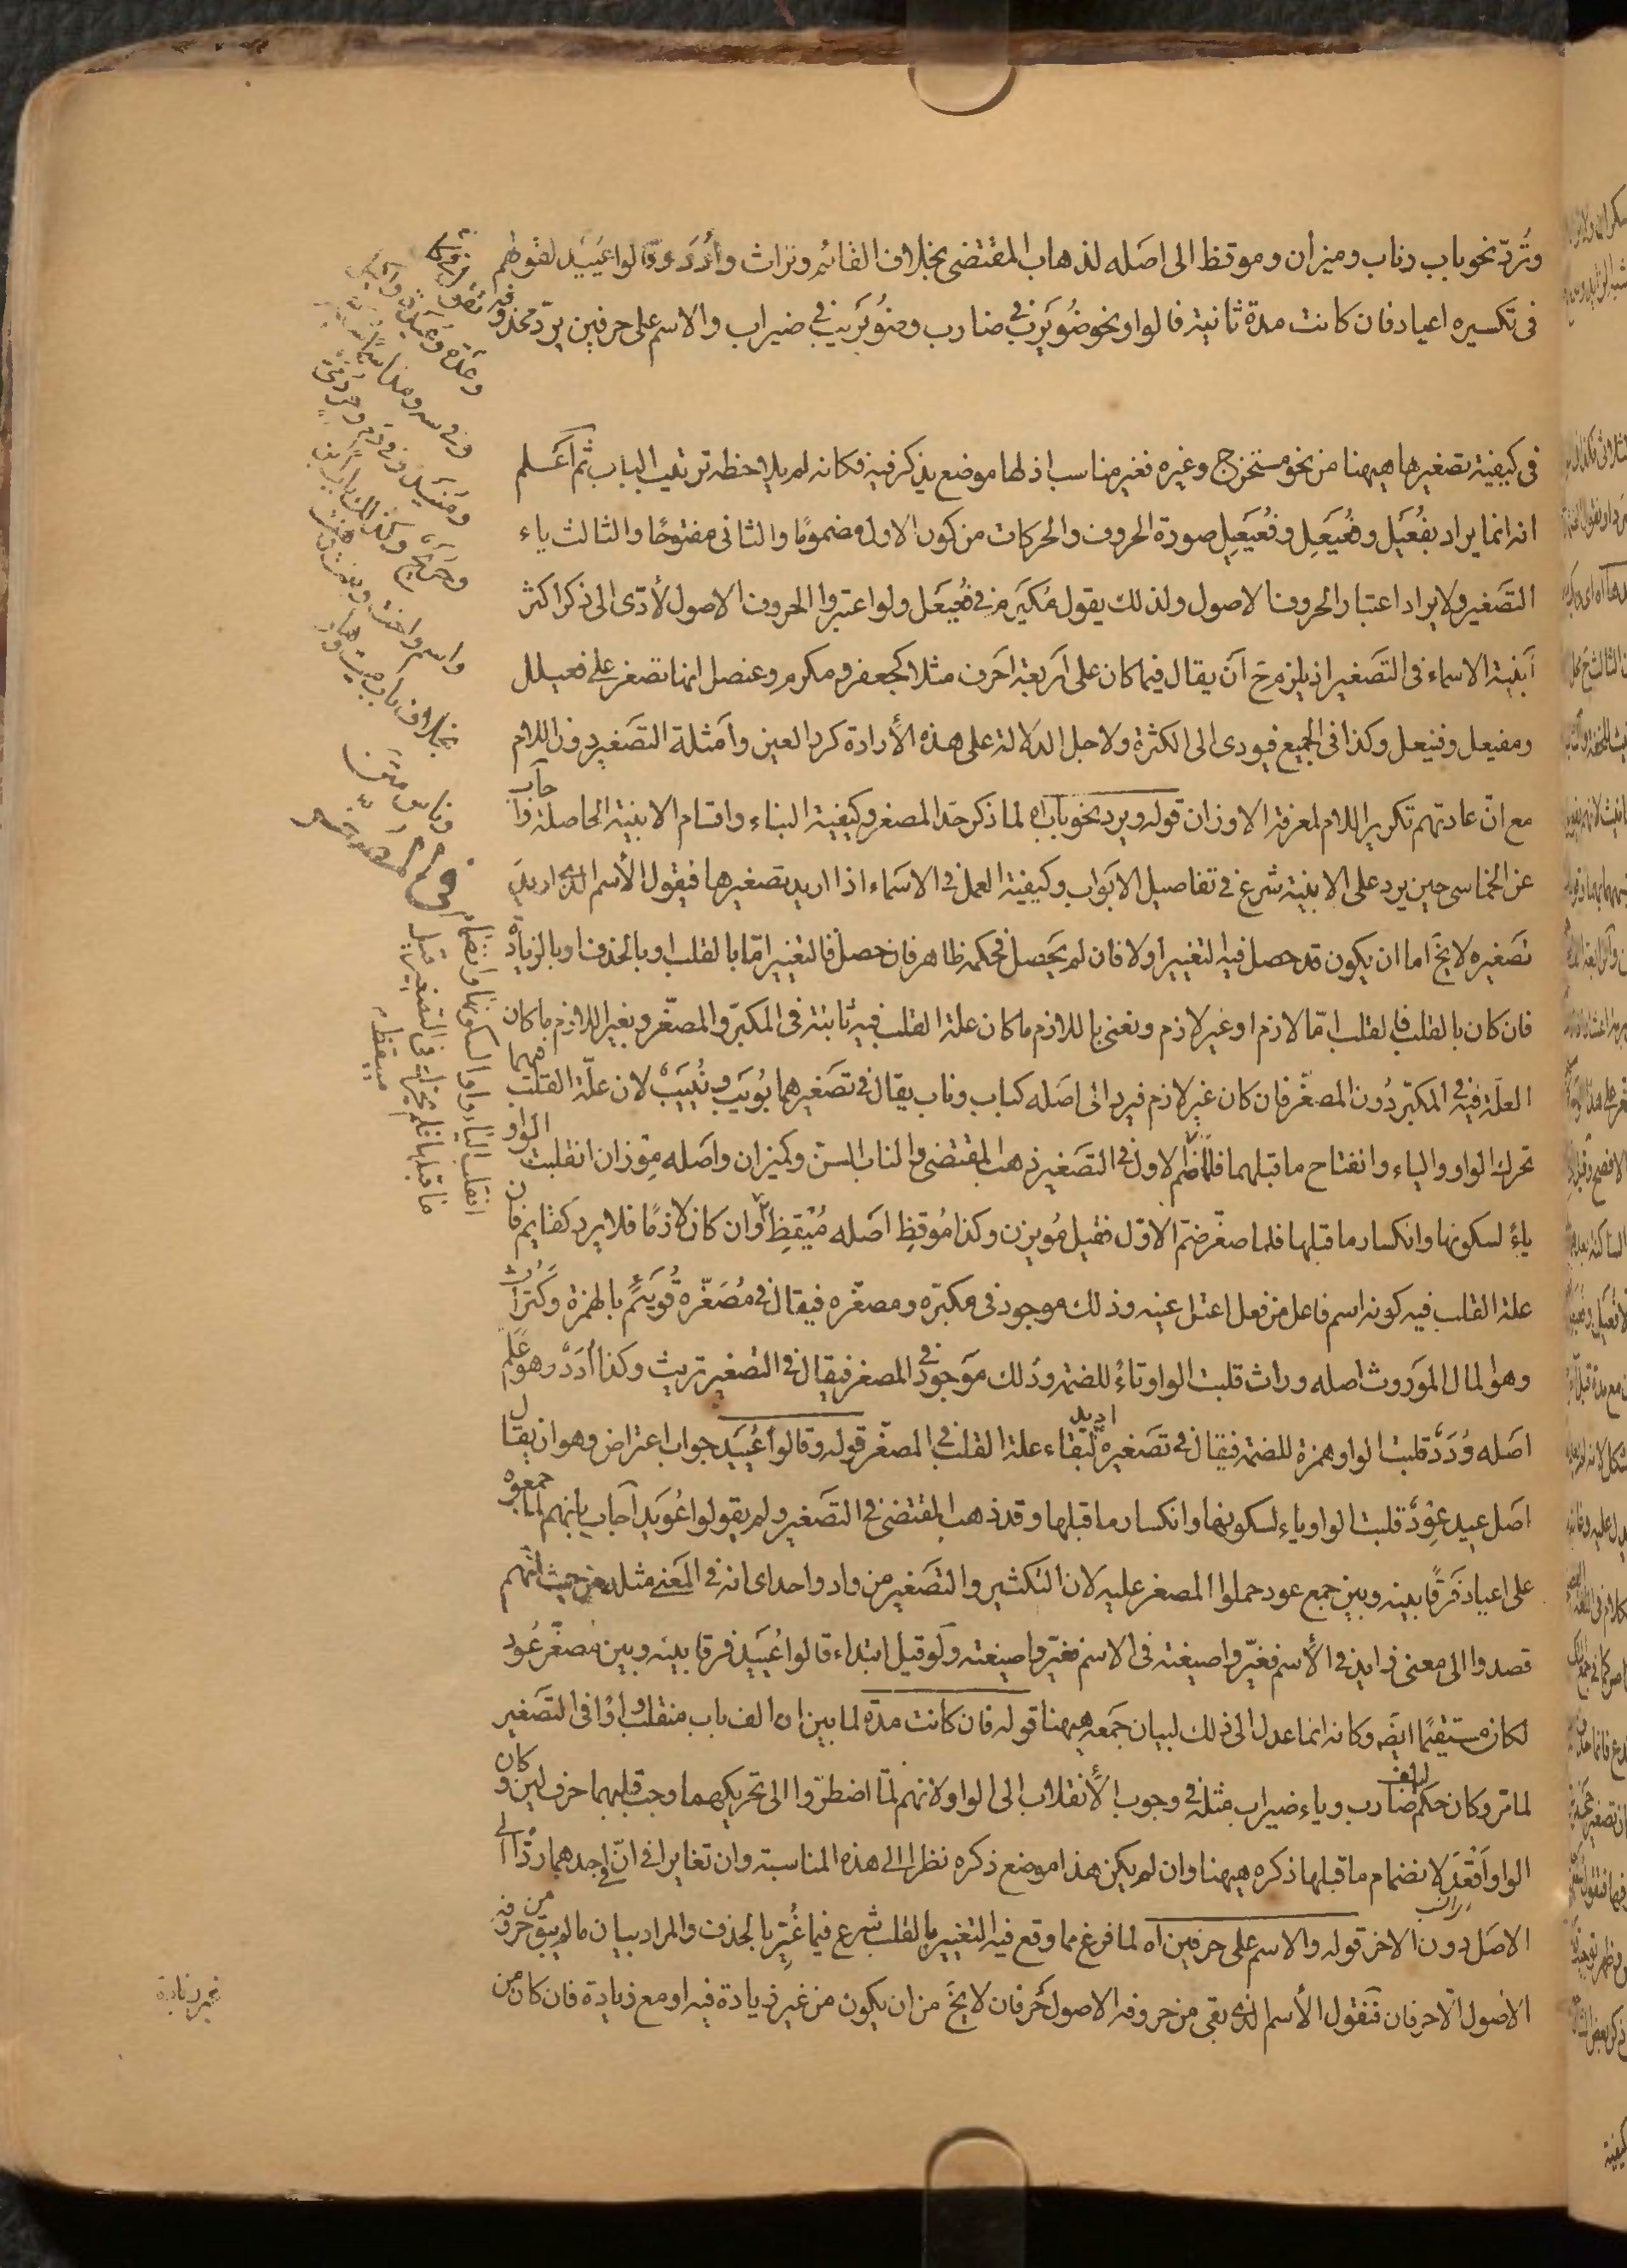 وتُردّ نحو باب وناب وميزان وموقظ الى اصله لذهاب المقتضى بخلاف القائم وتراث وأُدَد وقالوا عُيَيْد لقولهم
فى تكسيره اعياد فان كانت مدة ثانية فالواو نحو ضُوَيْرب فى ضارب وضُوَيْريب فى ضيراب والاسم على حرفين يردّ محذوفه
فى كيفية تصغيرها ههنا من نحو مستخرج وغيره فغير مناسب اذ لها موضع يذكر فيه فكانه لم يلاحظه ترتيب الباب ثم اعلم
انه انما يراد بفُعَيْل وفُعَيْعِل وفُعَيْعِيل صورة الحروف والحركات من كون الاول مضموما والثانى مفتوحًا والثالث ياء
التصغير ولا يراد اعتبار الحروف الاصول ولذلك يقول مُكَيْرم فى فُعَيْعل ولو اعتبروا الحروف الاصول لأدّى الى ذكر اكثر
أبنية الاسماء فى التصغير اذ يلزم ح أن يقال فيما كان على أربعة احرف مثلا كجعفر ومكرم وعنصل انها تصغر على فعيلل
ومفيعل وفنيعل وكذا فى الجميع فيودى الى الكثرة ولاجل الدلالة على هذه الأرادة كرر العين وأمثلة التصغير دون اللام
مع انّ عادتهم تكرير اللام لمعرفة الاوزان قوله ويرد نحو باب اه لما ذكر حدّ المصغر وكيفية البناء واقسام الابنية الحاصلة واجاب
عن الخماسى حين يرد على الابنية شرع فى تفاصيل الابواب وكيفية العمل فى الاسماء اذا اريد تصغيرها فيقول الأسم الذى اريد
تصغيره لا يخ اما ان يكون قد حصل فيه التغيير أولا فان لم يحصل فحكمه ظاهر فان حصل فالتغيير امّا بالقلب او بالحذف او بالزيادة
فان كان بالقلب فالقلب امّا لازم او غير لازم ونعنى باللازم ما كان علة القلب فيه ثابتة فى المكبر والمصغّر وبغير اللازم ما كان
العلة فيه فى المكبّر دُون المصغّر فان كان غير لازم فيرد الى اصله كباب وناب يقال فى تصغيرهما بُوَيْب ونُيَيْبٌ لان علّة القلب فيهما
تحرك الواو والياء وانفتاح ما قبلهما فلما ضم الاول فى التصغير ذهب المقتضى والناب المسنّ وكميزان واصله مِوْزان انقلبت الواو
ياءً لسكونها وانكسار ما قبلها فلما صغّر ضمّ الاوّل فقيل مُوَيْزن وكذا مُوقظِ اصله مُيْقِظ وان كان لازمًا فلا يرد كقايم فان
علة القلب فيه كونه اسم فاعل من فعل اعتل عينه وذلك موجود فى مكبّره ومصغّره فيقال فى مُصَغّره قُوَيئم بالهمزة وكتُراث
وهو المال الموروث اصله وراث قلبت الواو تاءً للضمّه وذلك موجود فى المصغر فيقال فى التصغير تريث وكذا أُدَدٌ وهو عَلَم
اصله وُدَدٌ قلبت الواو همزة للضمة فيقال فى تصغيره اديد لبقاء علة القلب فى المصغّر قوله وقالوا عُيَيْد جواب اعتراض وهو ان يقال
اصل عيد عِوْدٌ قلبت الواو ياء لسكونها وانكسار ما قبلها وقد ذهب المقتضى فى التصغير ولم يقولوا عُوَيْد أجاب بانهم لمّا جمعوه
على اعياد فَرقًا بينه وبين جمع عود حملوا المصغر عليه لان التكثير والتصغير من واد واحد اى انه فى المعنى مثله من حيث انّهم
قصدوا الى معنى زايد فى الأسم فغيّروا صيغته فى الاسم فغيّروا صيغته ولو قيل ابتداء قالوا عُيَيْد فرقا بينه وبين مُصغّر عُود
لكان مستقيمًا ايضًا وكانه انما عدل الى ذلك لبيان جمعه ههنا قوله فان كانت مدّة لما بين ان الف باب منقلب واوًا فى التصغير
لما مر وكان حكم الف ضارب وياء ضيراب مثله فى وجوب الأنقلاب الى الواو لانهم لمّا اضطرّوا الى تحريكهما وجب قبلهما حرف لين وكان
الواو اقعَد لانضمام ما قبلها ذكره ههنا وان لم يكن هذا موضع ذكره نظرا الى هذه المناسبة وان تغايرا فى انّ فى احدهما ردًّا الى
الاصل دون الاخر قوله والاسم على حرفين اه لما فرغ مما وقع فيه التغيير بالقلب شرع فيما غُيّر بالحذف والمراد بيان ما لم يبق من حروفه
الاصول الا حرفان فنقول الأسم الذى بقى من حروفه الاصول حرفان لا يخ من ان يكون من غير زيادة فيه او مع زيادة فان كان من
غير زيادة